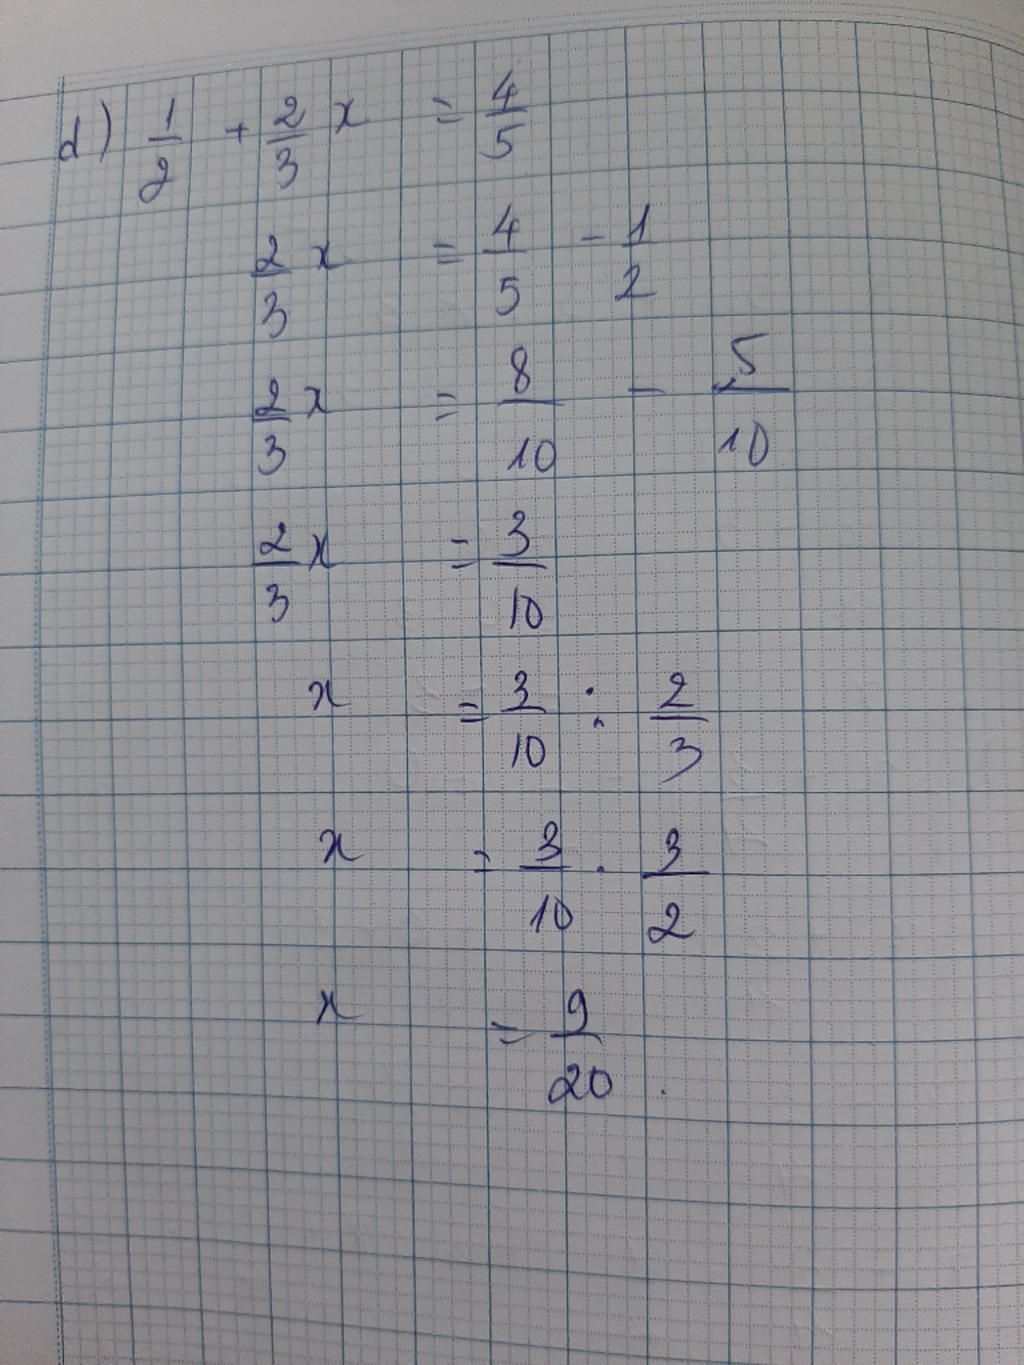 d) 1/2 + 2/3 x = 4/5
2/3 x = 4/5 - 1/2
2/3 x = 8/10 - 5/10
2/3 x = 3/10
x = 3/10 : 2/3
x = 3/10 . 3/2
x = 9/20 .